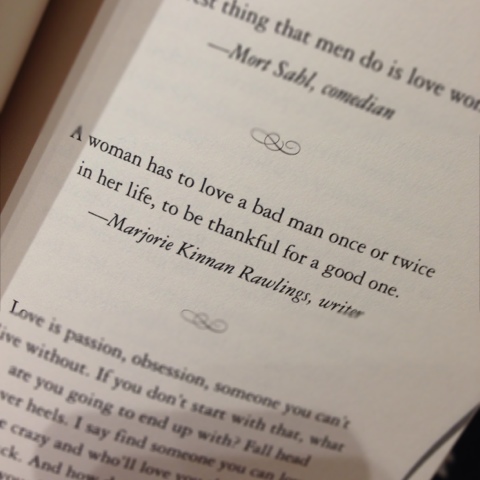 thing that men do is love
—Mort Sahl, comedian
A woman has to love a bad man once or twice
in her life, to be thankful for a good one.
—Marjorie Kinnan Rawlings, writer
Love is passion, obsession, someone you can't
without. If you don't start with that, what
are you going to end up with? Fall head
heels. I say find someone you can
crazy and who'll love
And